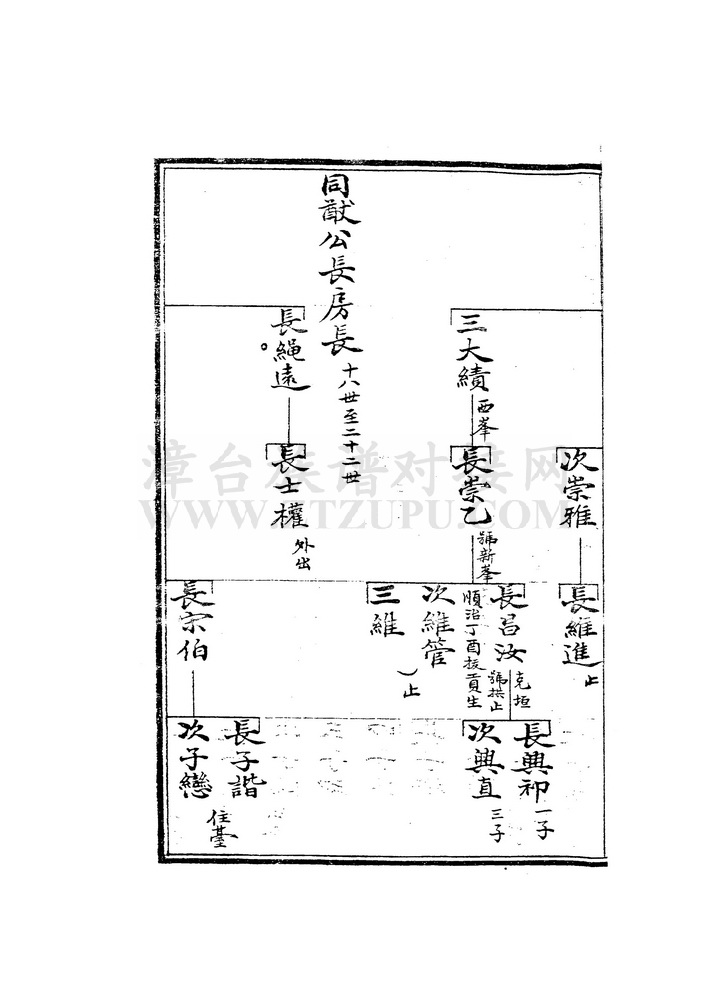 次崇雅
長維進
止
三大績
西峯
長崇乙
號新峯
長昌汝
克垣
號拱止
順治丁酉拔貢生
次維管
止
三維
長興卯
一子
次興直
三子
同猷公長房長
十八世至二十二世
長繩遠
長士權
外出
長宗伯
長子諧
次子戀
住臺
漳台族谱对接网
WWW.ZTZUPU.COM